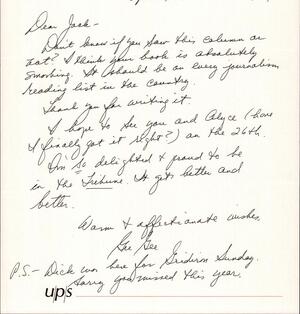 Dear Jack -
Don't know if you saw this column or
not? I think your book is absolutely
smashing. It should be on every journalism
reading list in the country.
Thank you for writing it.
I hope to see you and Alyce (have
I finally got it right?) on the 26th.
I'm so delighted & proud to be
in the Tribune. It gets better and
better.
Warm & affectionate wishes,
Gee Gee
P.S. - Dick was here for Gridiron Sunday.
Sorry you missed this year.
ups